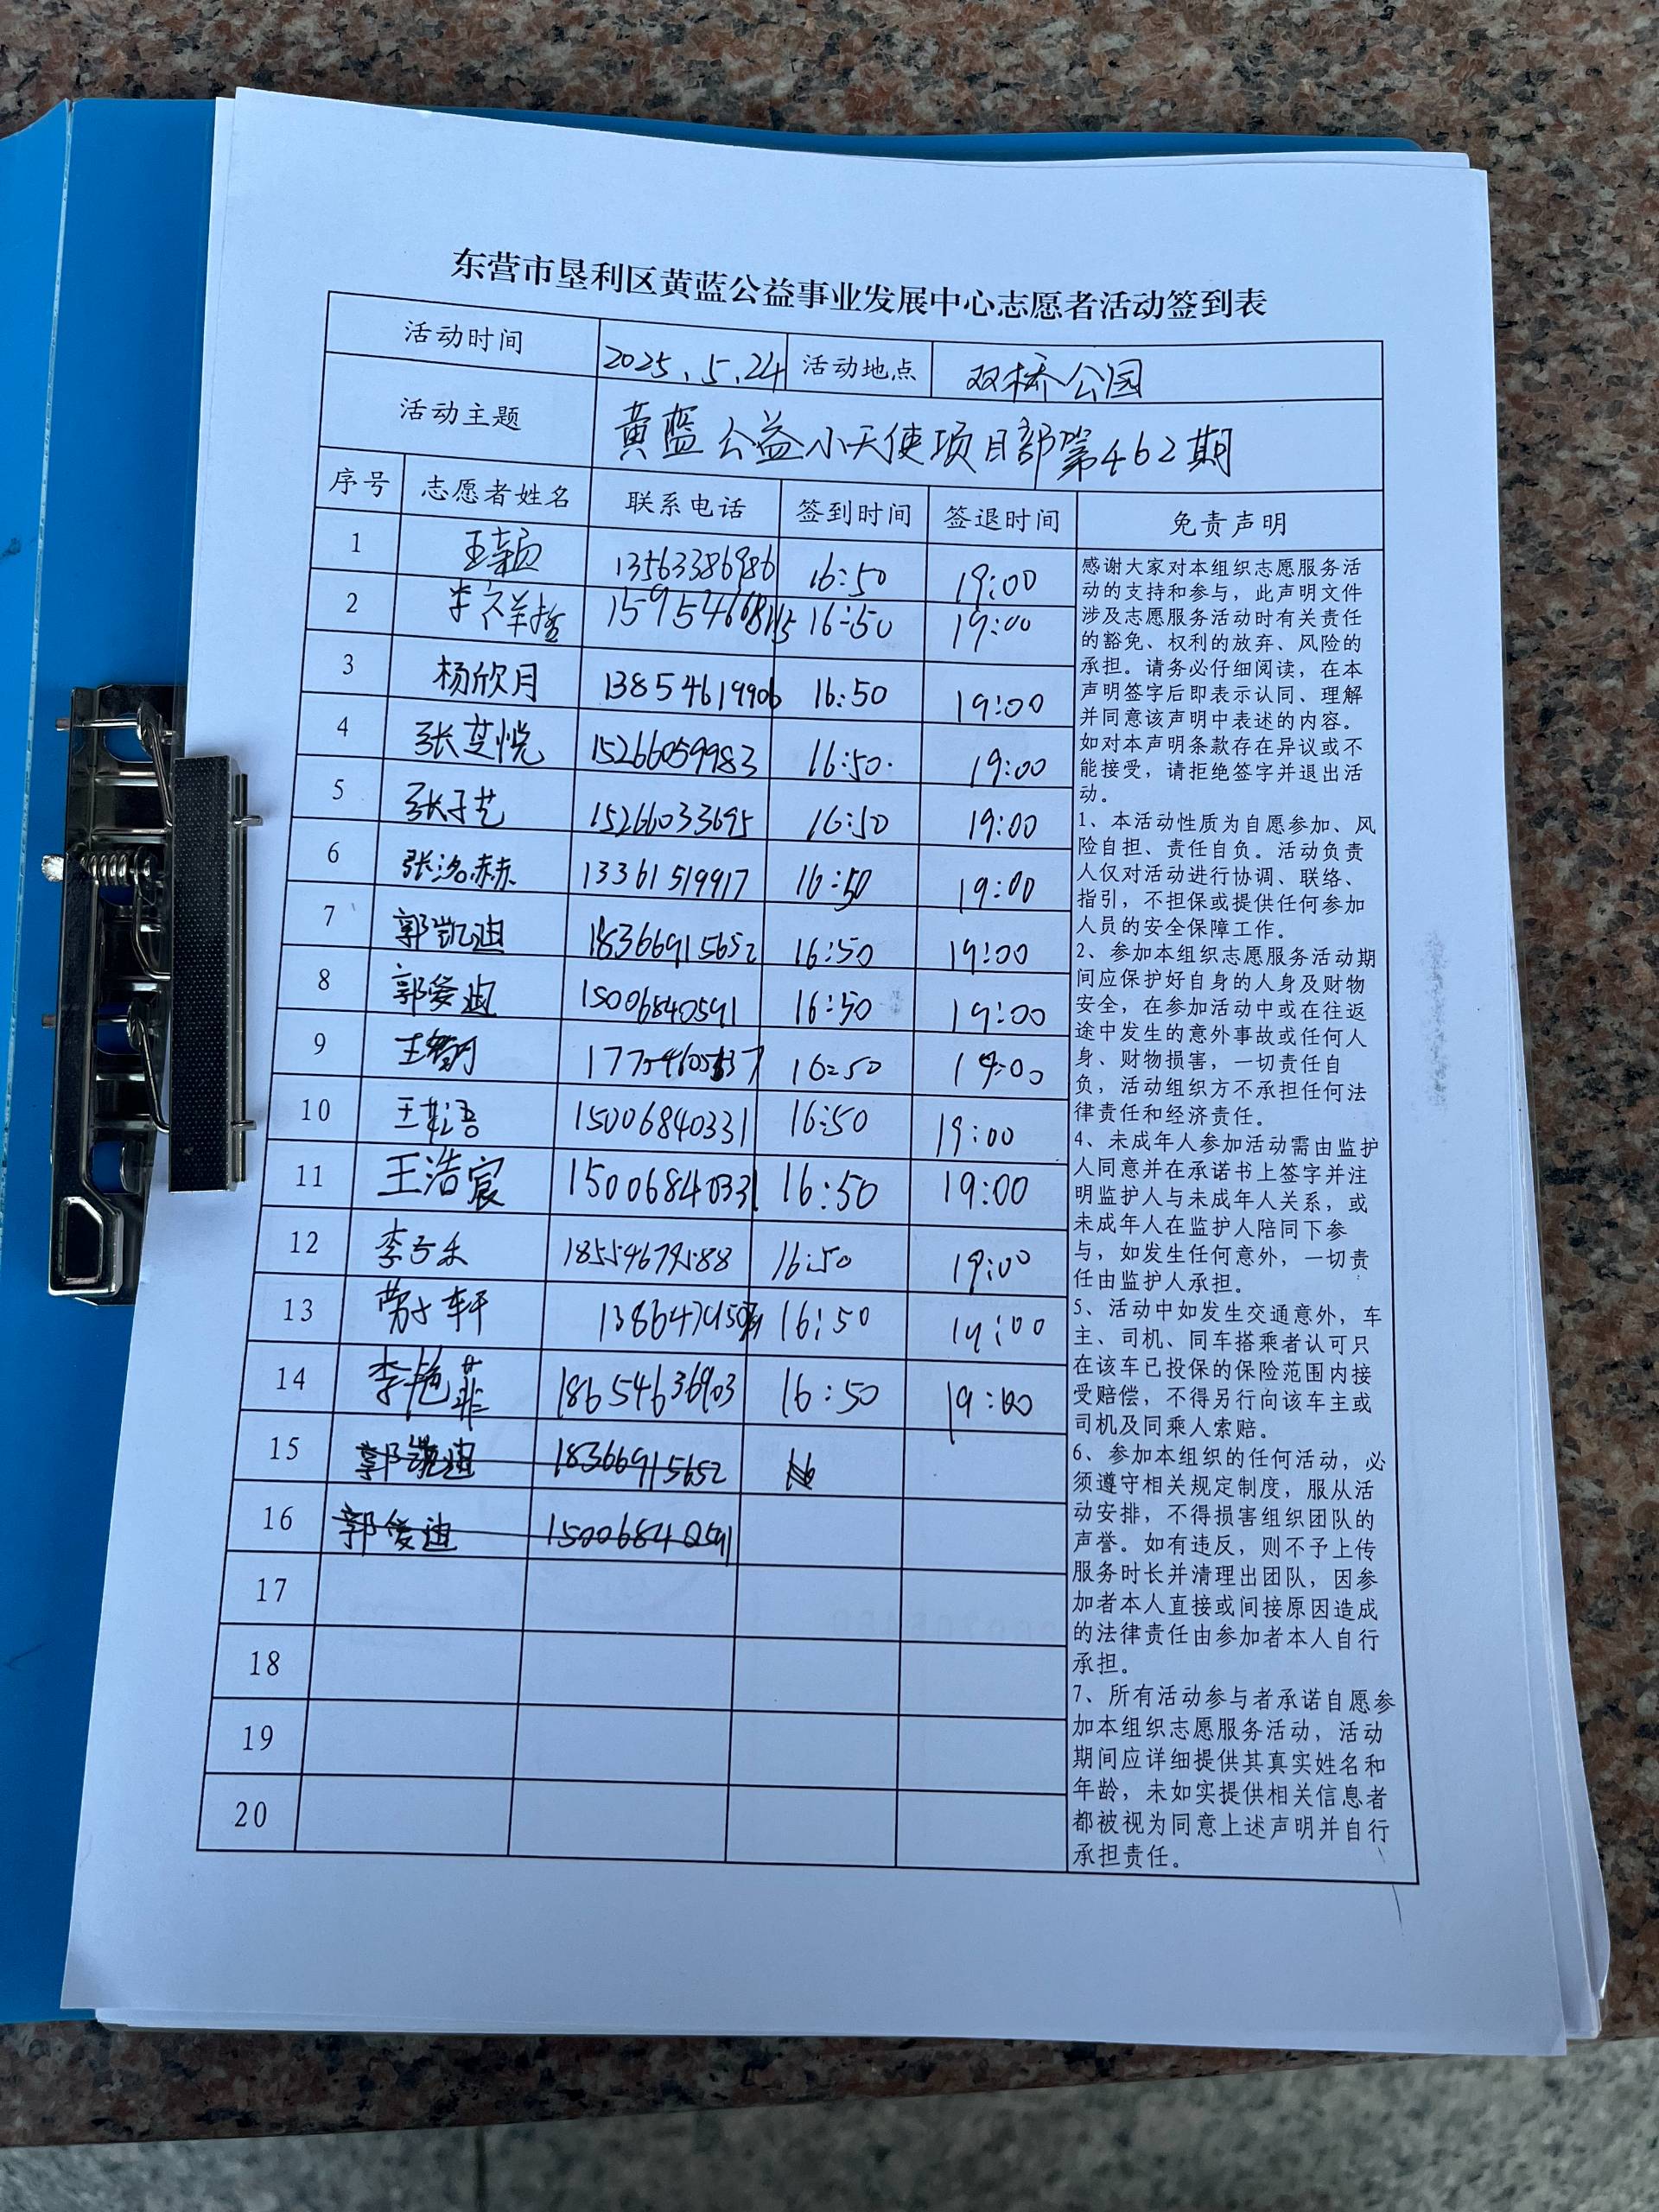 东营市垦利区黄蓝公益事业发展中心志愿者活动签到表
活动时间 2025.5.24 活动地点 双桥公园
活动主题 黄蓝公益小天使项目部第462期
序号 志愿者姓名 联系电话 签到时间 签退时间 免责声明
1 13563386986 16:50 19:00
2 16:50 19:00
3 杨欣月 13854619906 16:50 19:00
4 张芝悦 15266059983 16:50 19:00
5 张子艺 15266033695 16:50 19:00
6 张洺赫 13361519917 16:50 19:00
7 郭凯迪 18366915652 16:50 19:00
8 郭俊迪 15006840591 16:50 19:00
9 16:50 19:00
10 15006840331 16:50 19:00
11 王浩宸 15006840331 16:50 19:00
12 16:50 19:00
13 16:50 19:00
14 李艳菲 18654636903 16:50 19:00
15 郭凯迪 18366915652
16 郭俊迪 15006840591
17
18
19
20
感谢大家对本组织志愿服务活
动的支持和参与，此声明文件
涉及志愿服务活动时有关责任
的豁免、权利的放弃、风险的
承担。请务必仔细阅读，在本
声明签字后即表示认同、理解
并同意该声明中表述的内容。
如对本声明条款存在异议或不
能接受，请拒绝签字并退出活
动。
1、本活动性质为自愿参加、风
险自担、责任自负。活动负责
人仅对活动进行协调、联络、
指引，不担保或提供任何参加
人员的安全保障工作。
2、参加本组织志愿服务活动期
间应保护好自身的人身及财物
安全，在参加活动中或在往返
途中发生的意外事故或任何人
身、财物损害，一切责任自
负，活动组织方不承担任何法
律责任和经济责任。
4、未成年人参加活动需由监护
人同意并在承诺书上签字并注
明监护人与未成年人关系，或
未成年人在监护人陪同下参
与，如发生任何意外，一切责
任由监护人承担。
5、活动中如发生交通意外，车
主、司机、同车搭乘者认可只
在该车已投保的保险范围内接
受赔偿，不得另行向该车主或
司机及同乘人索赔。
6、参加本组织的任何活动，必
须遵守相关规定制度，服从活
动安排，不得损害组织团队的
声誉。如有违反，则不予上传
服务时长并清理出团队，因参
加者本人直接或间接原因造成
的法律责任由参加者本人自行
承担。
7、所有活动参与者承诺自愿参
加本组织志愿服务活动，活动
期间应详细提供其真实姓名和
年龄，未如实提供相关信息者
都被视为同意上述声明并自行
承担责任。